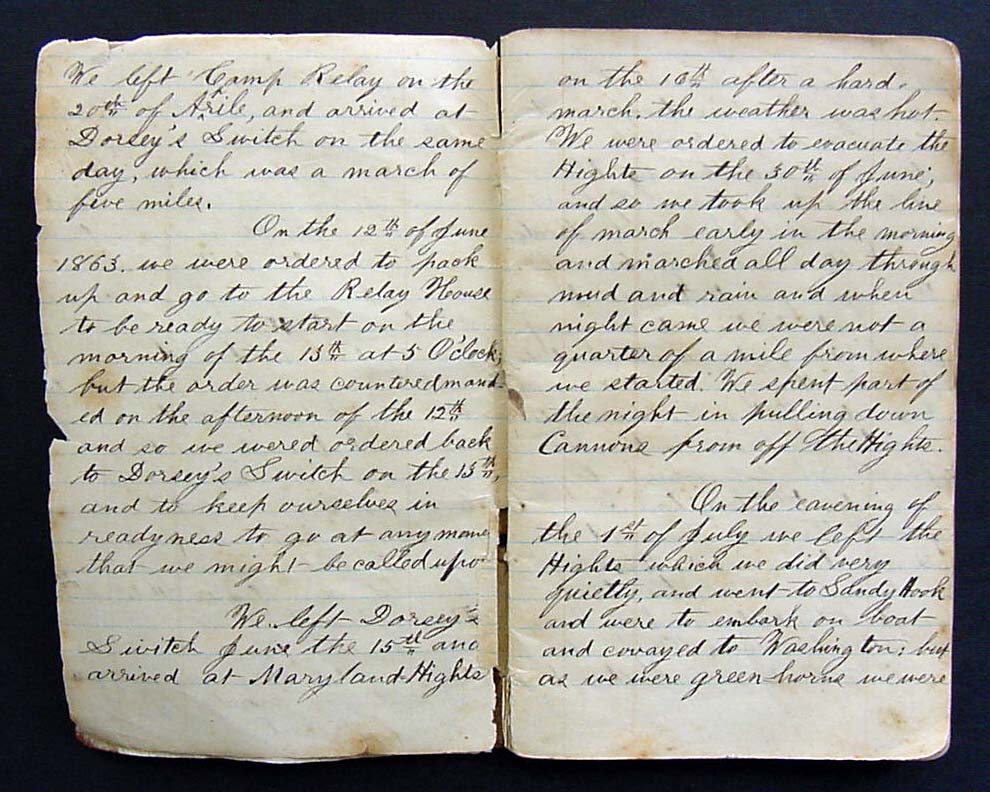 We left Camp Relay on the
20th of Arile, and arrived at
Dorsey's Switch on the same
day, which was a march of
five miles.
On the 12th of June
1863. we were ordered to pack
up and go to the Relay House
to be ready to start on the
morning of the 13th at 5 O'clock,
but the order was countered mand
ed on the afternoon of the 12th
and so we wered ordered back
to Dorsey's Switch on the 13th,
and to keep ourselves in
readyness to go at any mome
that we might be called upo
We left Dorsey's
Switch June the 15th and
arrived at Maryland Hights
on the 16th after a hard
march. the weather was hot.
We were ordered to evacuate the
Hights on the 30th of June,
and so we took up the line
of march early in the morning
and marched all day through
mud and rain and when
night came we were not a
quarter of a mile from where
we started. We spent part of
the night in pulling down
Cannons from off the Hights.
On the eavening of
the 1st of July we left the
Hights which we did very
quietly, and went to Sandy Hook
and were to embark on boat
and covayed to Washington; but
as we were green horns we were